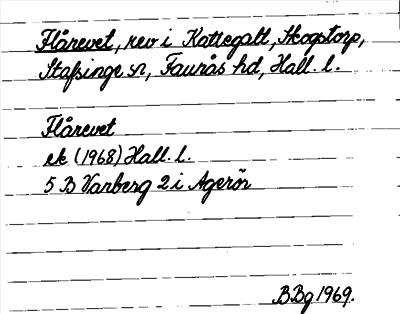 Flårevet, rev i Kattegatt, Skogstorp,
Stafsinge sn, Faurås hd, Hall. l.
Flårevet
ek (1968) Hall. l.
5 B Varberg 2 i Agerör
BBg 1969.